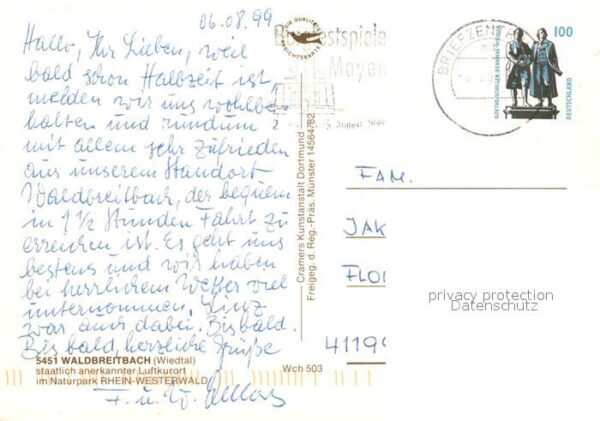 06.08.99
Hallo, Ihr Lieben, weil
bald schon Halbzeit ist
melden wir uns wohlbe-
halten und rundum
mit allem sehr zufrieden
aus unserem Standort
Waldbreitbach, der bequem
in 1 1/2 Stunden Fahrt zu
erreichen ist. Es geht uns
bestens und wir haben
bei herrlichem Wetter viel
unternommen, Linz
war auch dabei. Bis bald.
Bis bald, herzliche Grüße
F. u. W.
5451 WALDBREITBACH (Wiedtal)
staatlich anerkannter Luftkurort
im Naturpark RHEIN-WESTERWALD
Wch 503
DIE QUALITÄTS
ANSICHTSKARTE
Cramers Kunstanstalt Dortmund
Freigeg. d. Reg.-Präs. Münster 14564/82
Burgfestspiele
Mayen
August
BRIEFZENTRUM
100
GOETHE-SCHILLER-DENKMAL WEIMAR
DEUTSCHLAND
FAM.
JAK
FLO
4119
privacy protection
Datenschutz